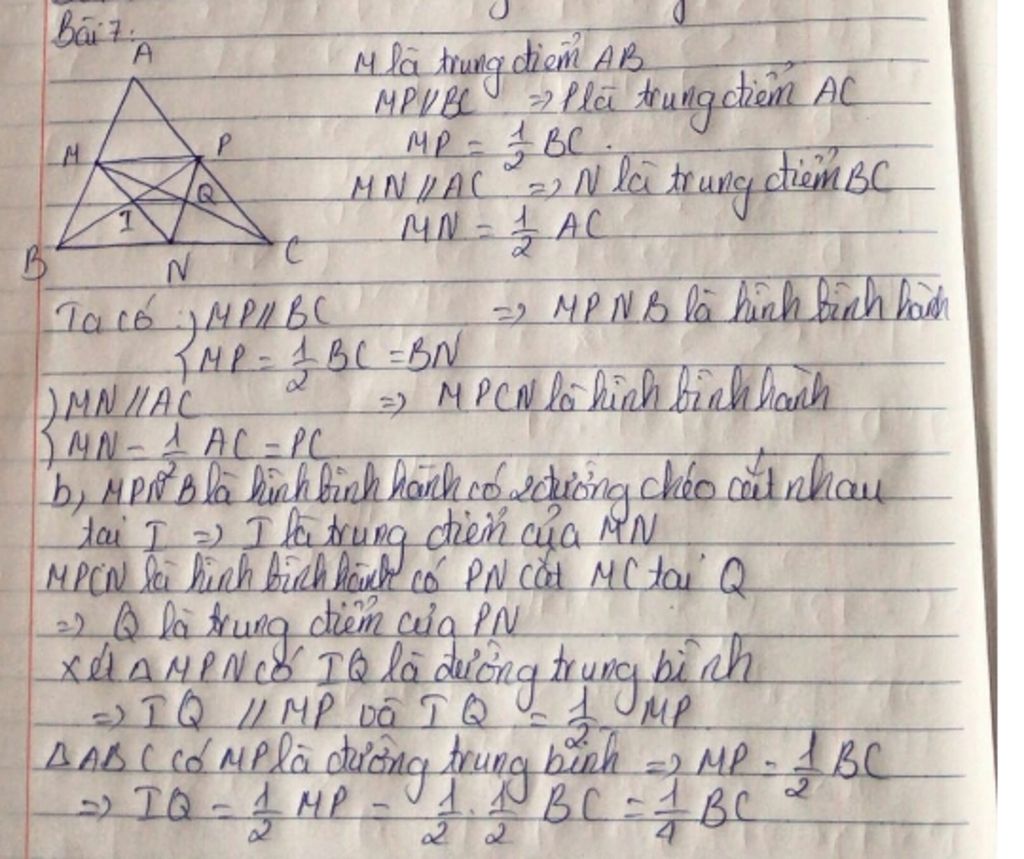 Bài 7:
A
M là trung điểm AB
MP//BC => P là trung điểm AC
M P
MP = 1/2 BC.
MN // AC => N là trung điểm BC
I Q
MN = 1/2 AC
B N C
Ta có { MP // BC => MPNB là hình bình hành
{ MP = 1/2 BC = BN
{ MN // AC => MPCN là hình bình hành
{ MN = 1/2 AC = PC
b, MPNB là hình bình hành có 2 đường chéo cắt nhau
tại I => I là trung điểm của MN
MPCN là hình bình hành có PN cắt MC tại Q
=> Q là trung điểm của PN
Xét △ MPN có IQ là đường trung bình
=> IQ // MP và IQ = 1/2 MP
△ ABC có MP là đường trung bình => MP = 1/2 BC
=> IQ = 1/2 MP = 1/2 . 1/2 BC = 1/4 BC